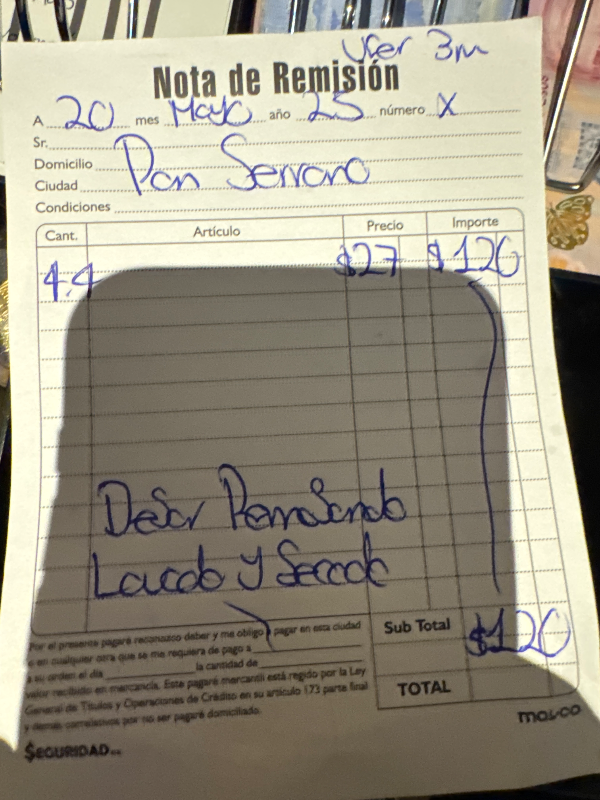 User 3m
Nota de Remisión
A 20 mes Mayo año 25 número X
Sr.
Domicilio
Ciudad Dan Serrano
Condiciones
Cant. Artículo Precio Importe
4.4 $27 $120
Dejar Remojando
Lavado y Secado
Por el presente pagaré reconozco deber y me obligo a pagar en esta ciudad
o en cualquier otra que se me requiera de pago a
a su orden el día la cantidad de
valor recibido en mercancía. Este pagaré mercantil está regido por la Ley
General de Títulos y Operaciones de Crédito en su artículo 173 parte final
y demás correlativos por no ser pagaré domiciliado.
Sub Total $120
TOTAL
SEGURIDAD